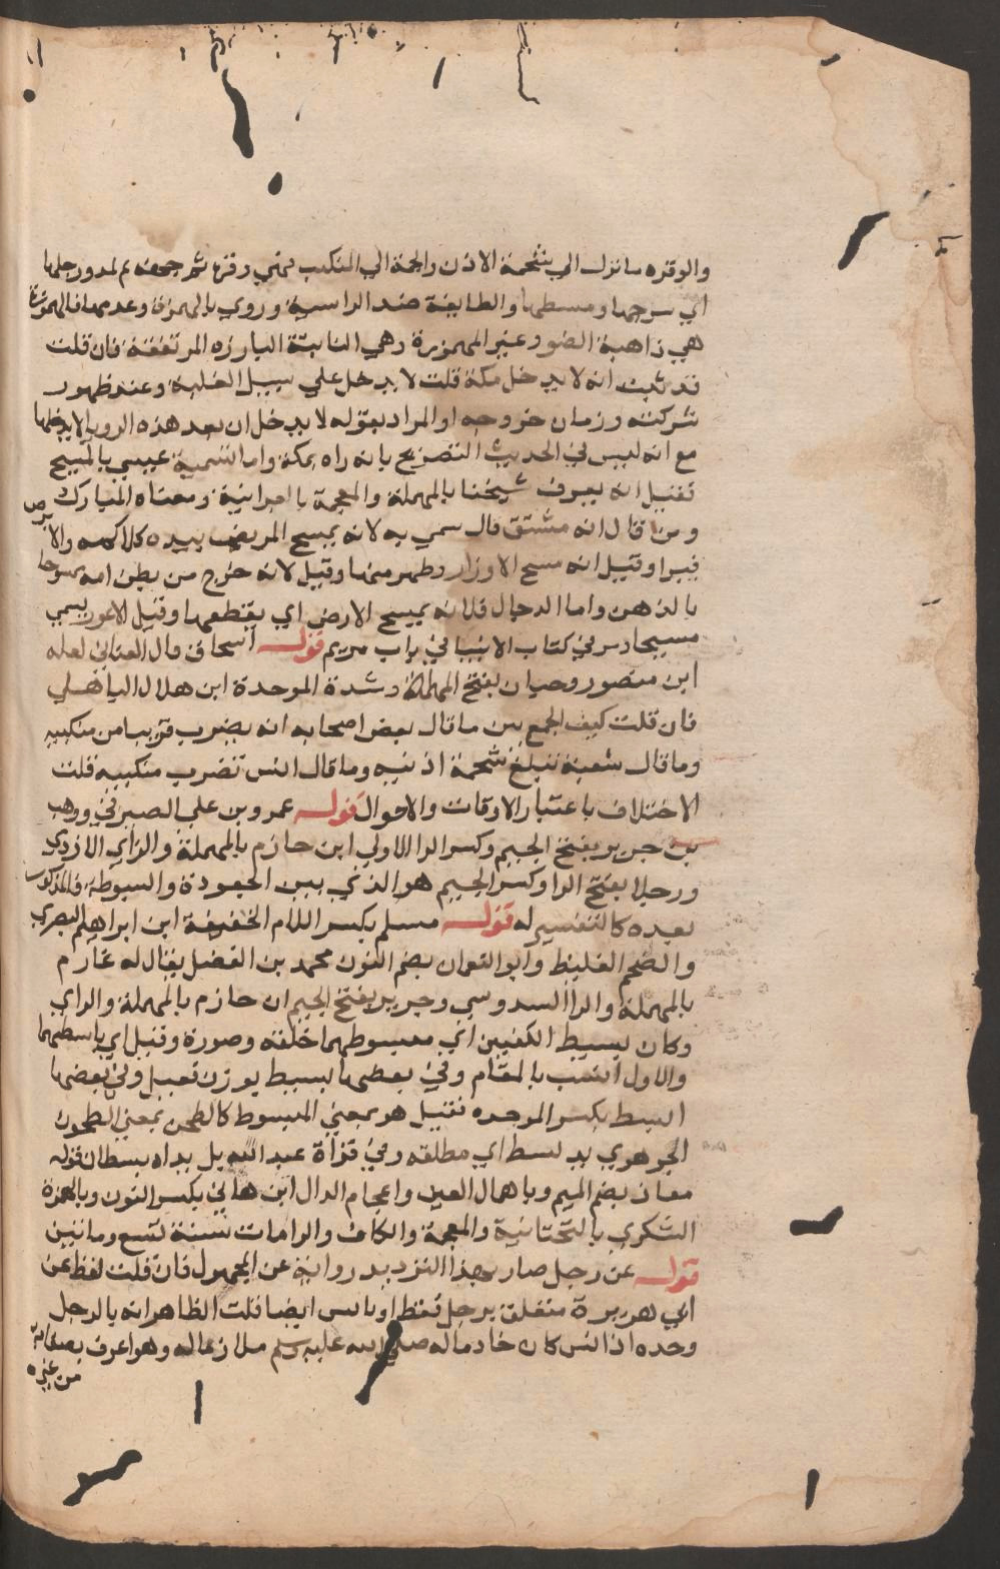 والوفره ما نزل الي شحمة الاذن والجمة الي المنكب فهي وفره ثم جمة ثم لمة ورجلها
اي سرحها ومشطها والطافية ضد الراسبة وروي بالهمزة وعدمها فالمهموزة
هي ذاهبة الضوء وغير المهموزة وهي الناتئة البارزه المرتفعة فان قلت
قد ثبت انه لا يدخل مكة قلت لا يدخل علي سبيل الغلبة وعند ظهور
شوكته وزمان خروجه او المراد بقوله لا يدخل ان بعد هذه الرويا لا يدخلها
مع انه ليس في الحديث التصريح بانه راه بمكة واما تسمية عيسي بالمسيح
فقيل انه يعرف شيخنا بالمهملة والمعجمة بالعبرانية ومعناه المبارك
ومن قال انه مشتق قال سمي به لانه يمسح المريض بيده كالاكمه والابرص
فيبرا وقيل انه مسح الاوزار وطهر منها وقيل لانه خرج من بطن امه ممسوحا
بالدهن واما الدجال فلانه يمسح الارض اي يقطعها وقيل الاعور يسمي
مسيحا ومر في كتاب الانبيا في باب مريم قوله اسحاق قال الغساني لعله
ابن منصور وحبان بفتح المهملة وشدة الموحدة ابن هلال الباهلي
فان قلت كيف الجمع بين ما قال بعض اصحابه انه يضرب قريبا من منكبيه
وما قال شعبة تبلغ شحمة اذنيه وما قال انس تضرب منكبيه قلت
الاختلاف باعتبار الاوقات والاحوال قوله عمرو بن علي الصيرفي ووهب
بن جرير بفتح الجيم وكسر الرا الاولي ابن حازم بالمهملة والزاي الازدي
ورجلا بفتح الرا وكسر الجيم هو الذي بين الجعودة والسبوطة فالمذكور
بعده كالتفسير له قوله مسلم بكسر اللام الخفيفة ابن ابراهيم البصري
والضخم الغليظ وابو النعمان بضم النون محمد بن الفضل يقال له عارم
بالمهملة والرا السدوسي وجرير بفتح الجيم ابن حازم بالمهملة والزاي
وكان بسيط الكفين اي مبسوطهما خلقة وصورة وقيل اي باسطهما
والاول انسب بالمقام وفي بعضها بسيط بوزن فعيل وفي بعضها
البسط بكسر الموحده فقيل هو بمعني المبسوط كالطحن بمعني المطحون
الجوهري يد بسط اي مطلقه وفي قراة عبد الله بل يداه بسطان قوله
معاذ بضم الميم وباهمال العين واعجام الذال ابن هاني بكسر النون وبالهمزة
اليشكري بالتحتانية والمعجمة والكاف والرا مات سنة تسع ومايتين
قوله عن رجل صار بهذا الترديد رواية عن المجهول فان قلت لفظ عن
ابي هريرة متعلق برجل فقط او بانس ايضا قلت الظاهر انه بالرجل
وحده اذ انس كان خادما له صلي الله عليه وسلم ملازما له وهو اعرف بصفاته
من غيره